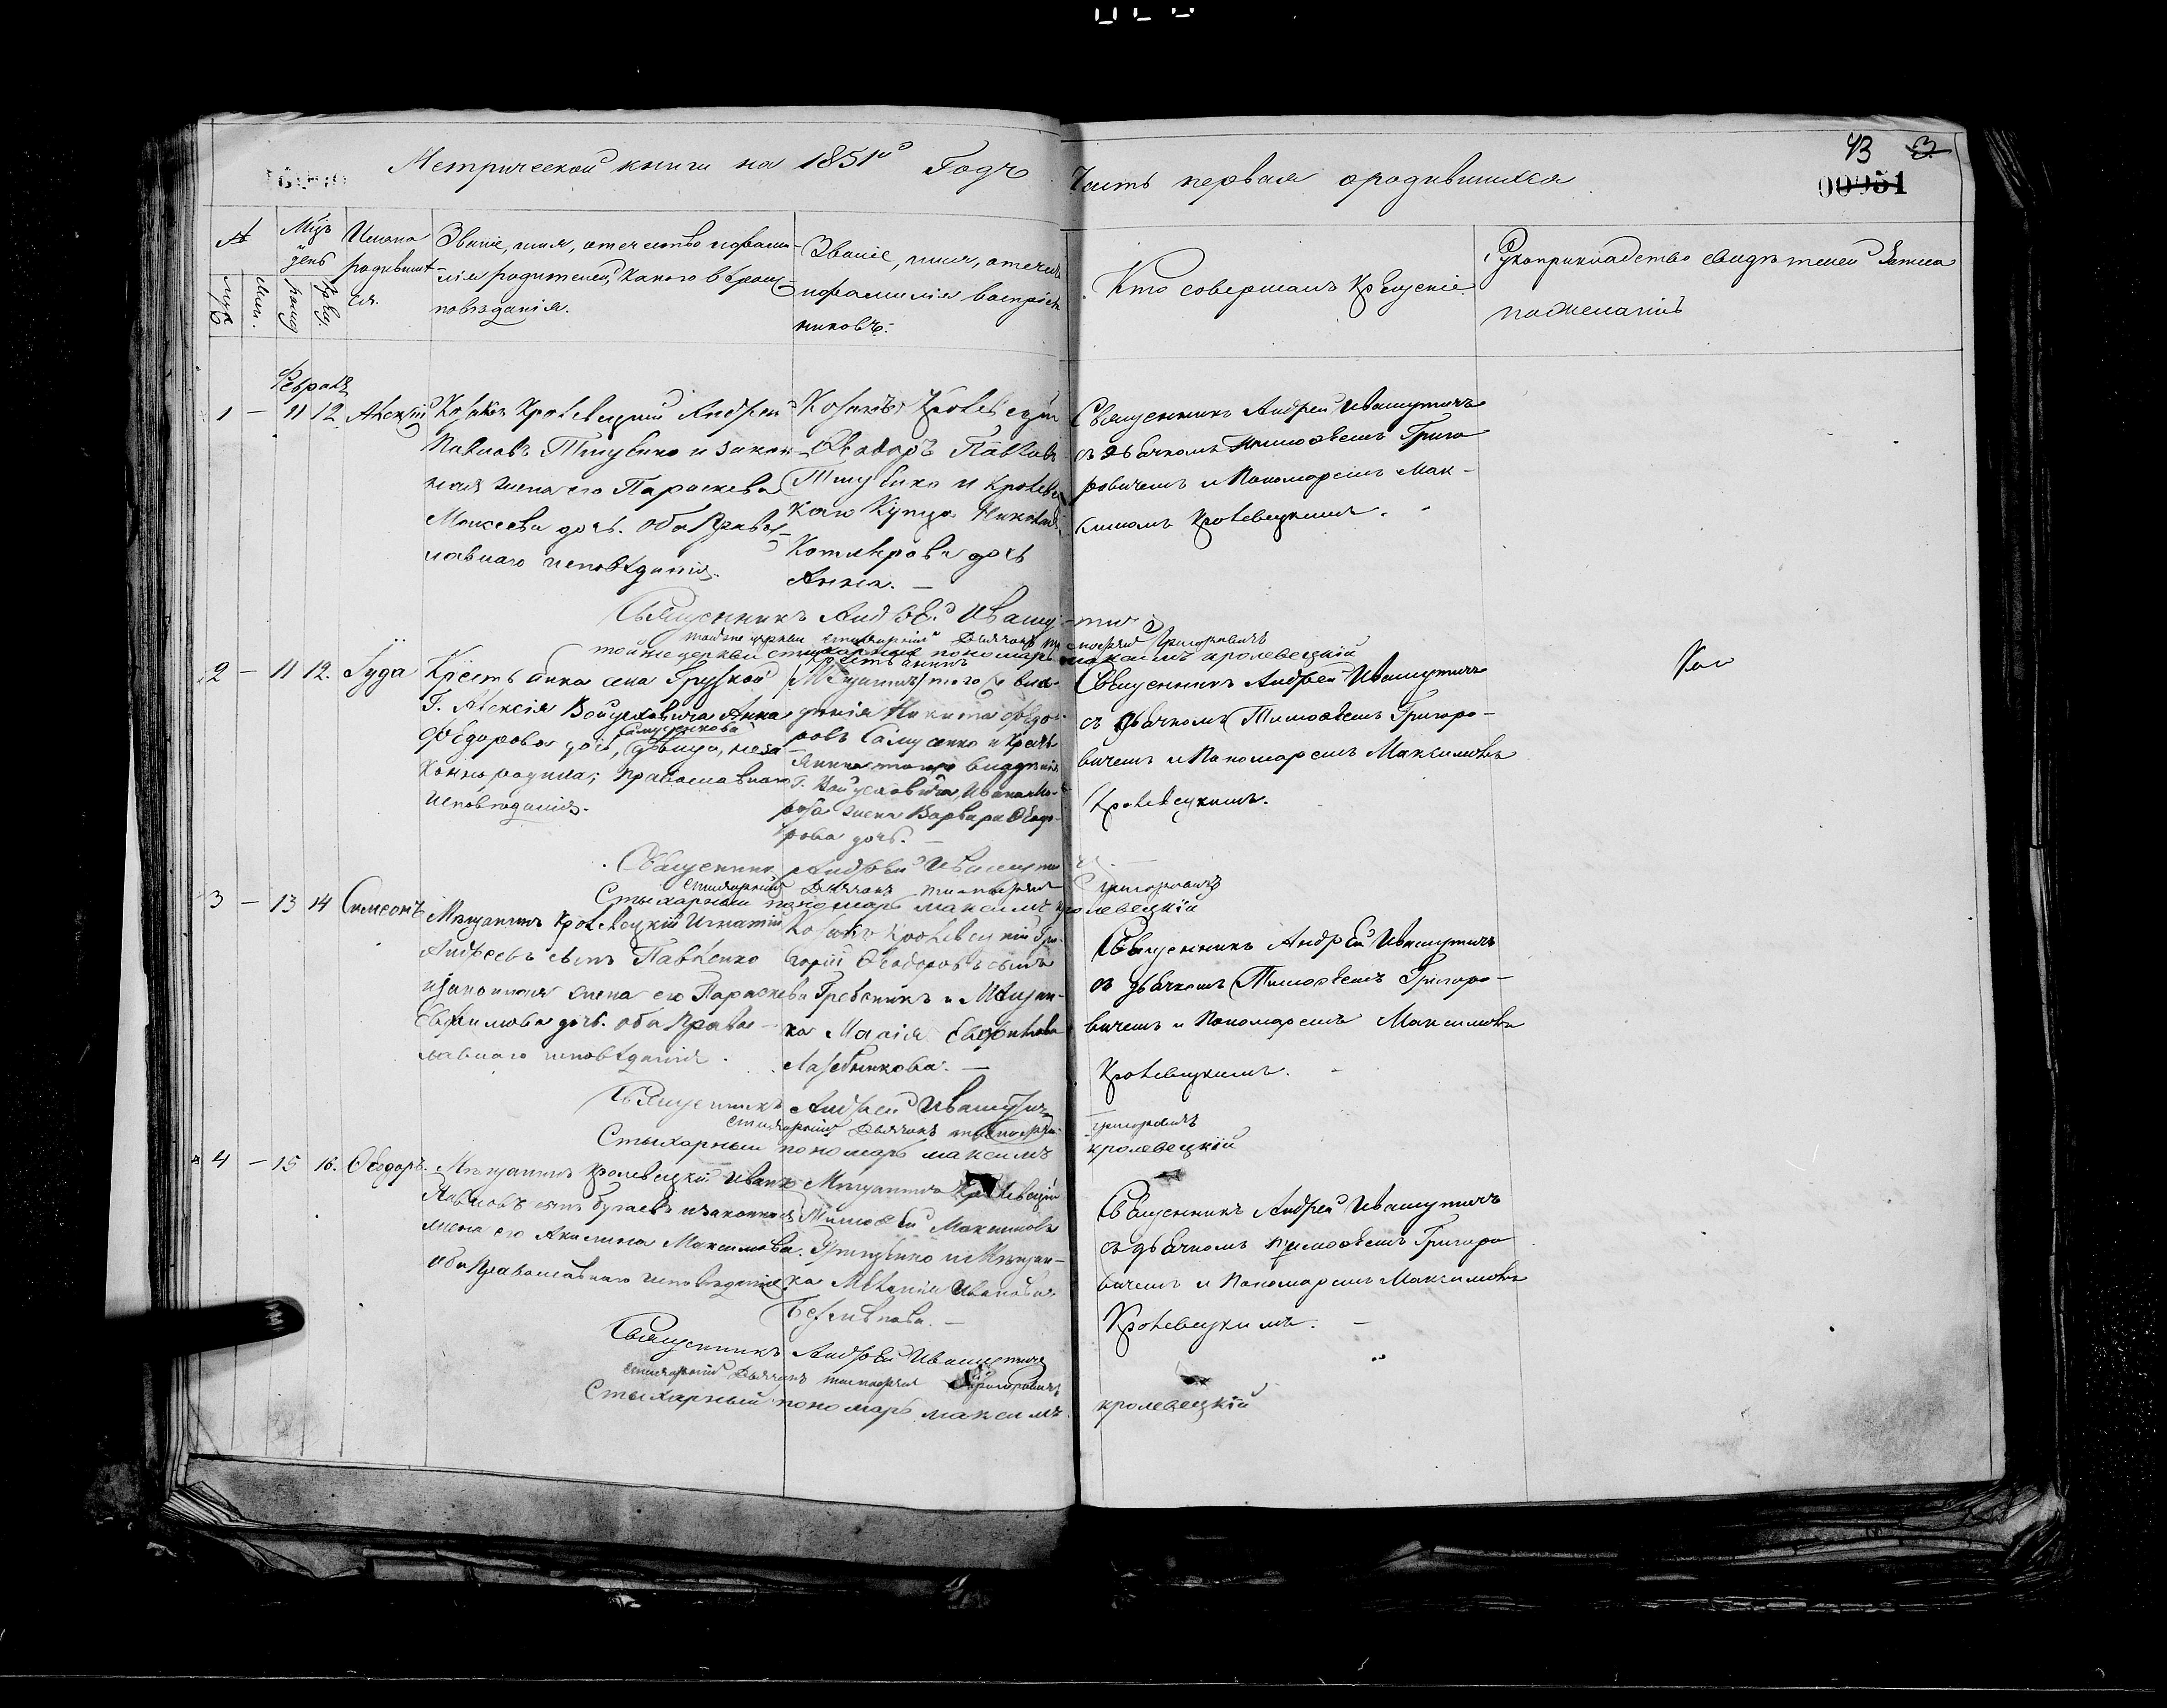 Метрической книги на 1851й Годъ
Часть первая о родившихся
43 3
00951
Мцъ день
муж.
жен.
рожд.
крещ.
Имена родившихся.
Званіе, имя, отечество и фами-
лія родителей, какого вѣроис-
повѣданія.
Званіе, имя, отечест
и фамилія воспріем
никовъ.
Кто совершалъ крещеніе
Рукоприкладство свидѣтелей записи
по желанію
Февраль
1 — 11 12 Алексій
Козакъ Кролевецкій Андрей
Павловъ Тищенко и закон-
ная жена его Параскева
Моисеева дочь. оба Правос-
лавнаго исповѣданія.
Козакъ Кролевецкій
Феодоръ Павловъ
Тищенко и Кролевец
каго Купца Николая
дочь
Анна. —
Священникъ Андрей Ивашутичъ
съ дьячкомъ Тимофеемъ Григо
ровичемъ и Пономаремъ Мак-
симомъ Кролевецкимъ.
Священникъ Андрей Ивашутичъ
тойже церкви стихарный Дьячокъ тимофей Григоровичъ
тойже церкви стихарный пономарь максимъ кролевецкій
2 — 11 12. Іуда
Г. Алексія Войцеховича Анна
Федорова дочь, дѣвица, неза-
конно родила; православнаго
исповѣданія.
крестьянинъ
того же вла-
дѣнія Никита Федо-
ровъ Самусенко и Крест
янина того владѣнія
Г. Войцеховича, Ивана Мо-
роза жена Варвара Федо-
рова дочь. —
Священникъ Андрей Ивашутичъ
съ дьячкомъ Тимофеемъ Григоро-
вичемъ и Пономаремъ Максимомъ
Кролевецкимъ.
Священникъ Андрей Ивашутичъ. —
Стихарный Дьячокъ тимофей Григоровичъ
Стыхарный пономарь максимъ кролевецкій
3 — 13 14 Симеонъ
Мѣщанинъ Кролевецкій Игнатій
Андреевъ сынъ Павленко
и законная жена его Параскева
Евфимова дочь. оба Правос-
лавнаго исповѣданія.
Козакъ Кролевецкій Гри-
горій Феодоровъ сынъ
Гребеникъ и Мѣщан-
ка Марія
Лазебникова. —
Священникъ Андрей Ивашутичъ
съ дьячкомъ Тимофеемъ Григоро-
вичемъ и Пономаремъ Максимомъ
Кролевецкимъ.
Священникъ Андрей Ивашутичъ
Стихарный Дьячокъ тимофей Григоровичъ
Стыхарный пономарь максимъ кролевецкій
4 — 15 16. Феодоръ.
Мѣщанинъ Кролевецкій Иванъ
Павловъ сынъ Бугаевъ и законная
жена его Акилина Максимова.
оба Православнаго исповѣданія
Мѣщанинъ Кролевецкій
Тимофей Максимовъ
Грищенко и Мѣщан-
ка Меланія Иванова
Священникъ Андрей Ивашутичъ
съ дьячкомъ Тимофеемъ Григоро
вичемъ и Пономаремъ Максимомъ
Кролевецкимъ. —
Священникъ Андрей Ивашутичъ
стихарный Дьячокъ тимофей Григоровичъ
Стыхарный пономарь максимъ кролевецкій